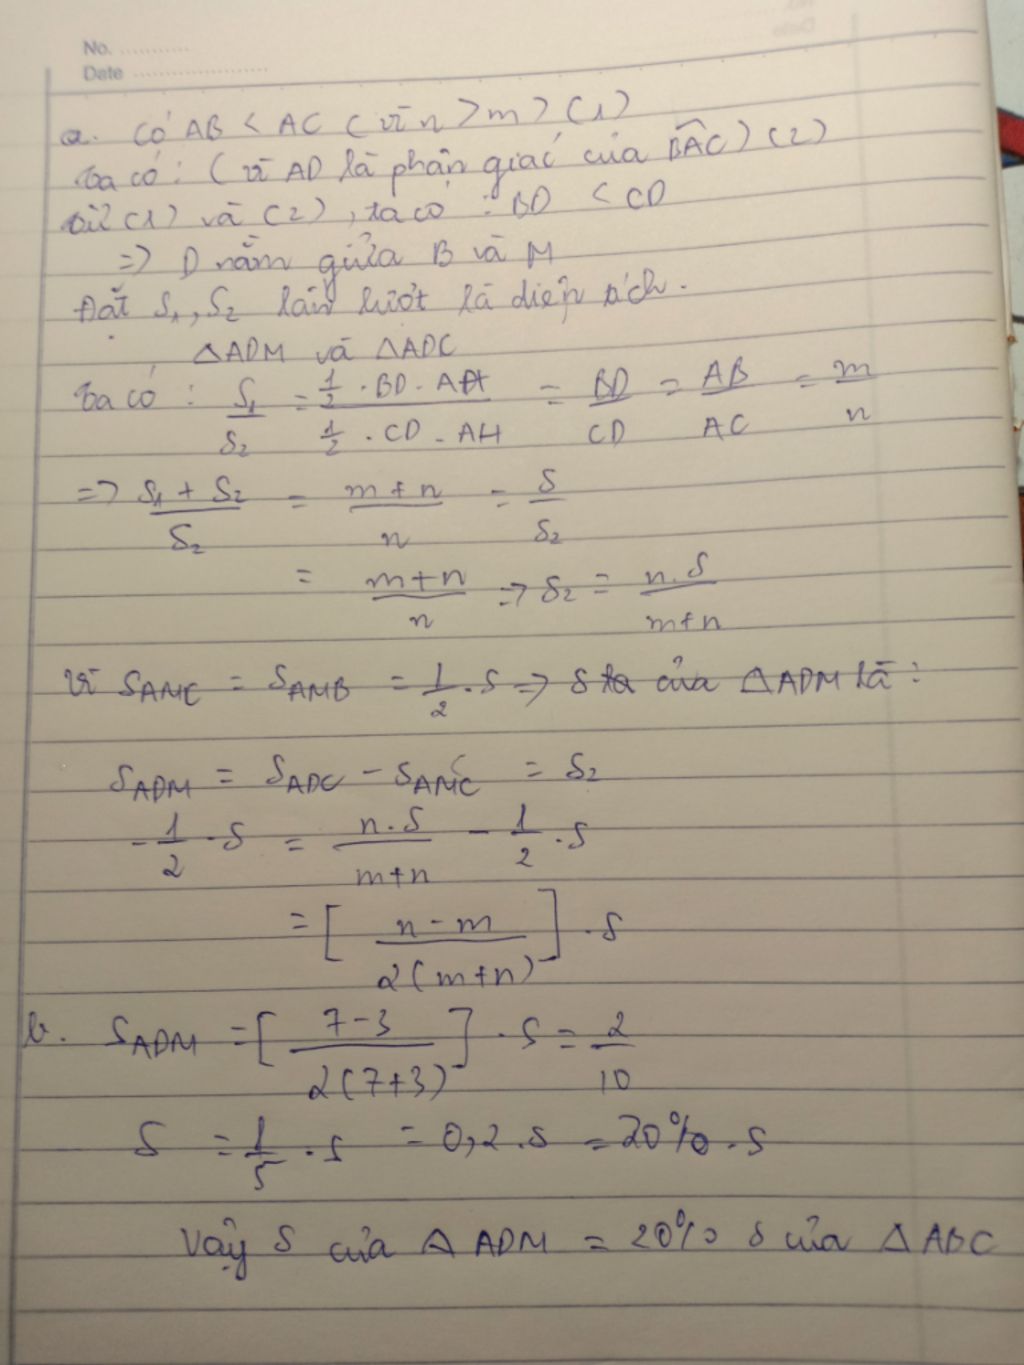 No. ............
Date ......................
a. Có AB < AC ( vì n > m > (1)
Ta có : ( vì AD là phân giác của BAC ) (2)
từ (1) và (2), ta có : BD < CD
=> D nằm giữa B và M
Đặt S1, S2 lần lượt là diện tích.
△ADM và △ADC
Ta có : S1/S2 = (1/2 . BD . AH)/(1/2 . CD . AH) = BD/CD = AB/AC = m/n
=> (S1 + S2)/S2 = (m + n)/n = S/S2
= (m+n)/n => S2 = (n.S)/(m+n)
Vì SAMC = SAMB = 1/2 . S => S của △ADM là :
SADM = SADC - SAMC = S2
- 1/2 . S = (n.S)/(m+n) - 1/2 . S
= [ (n - m)/(2(m+n)) ] . S
b. SADM = [ (7-3)/(2(7+3)) ] . S = 2/10
S = 1/5 . S = 0,2 . S = 20% . S
Vậy S của △ ADM = 20% S của △ ABC